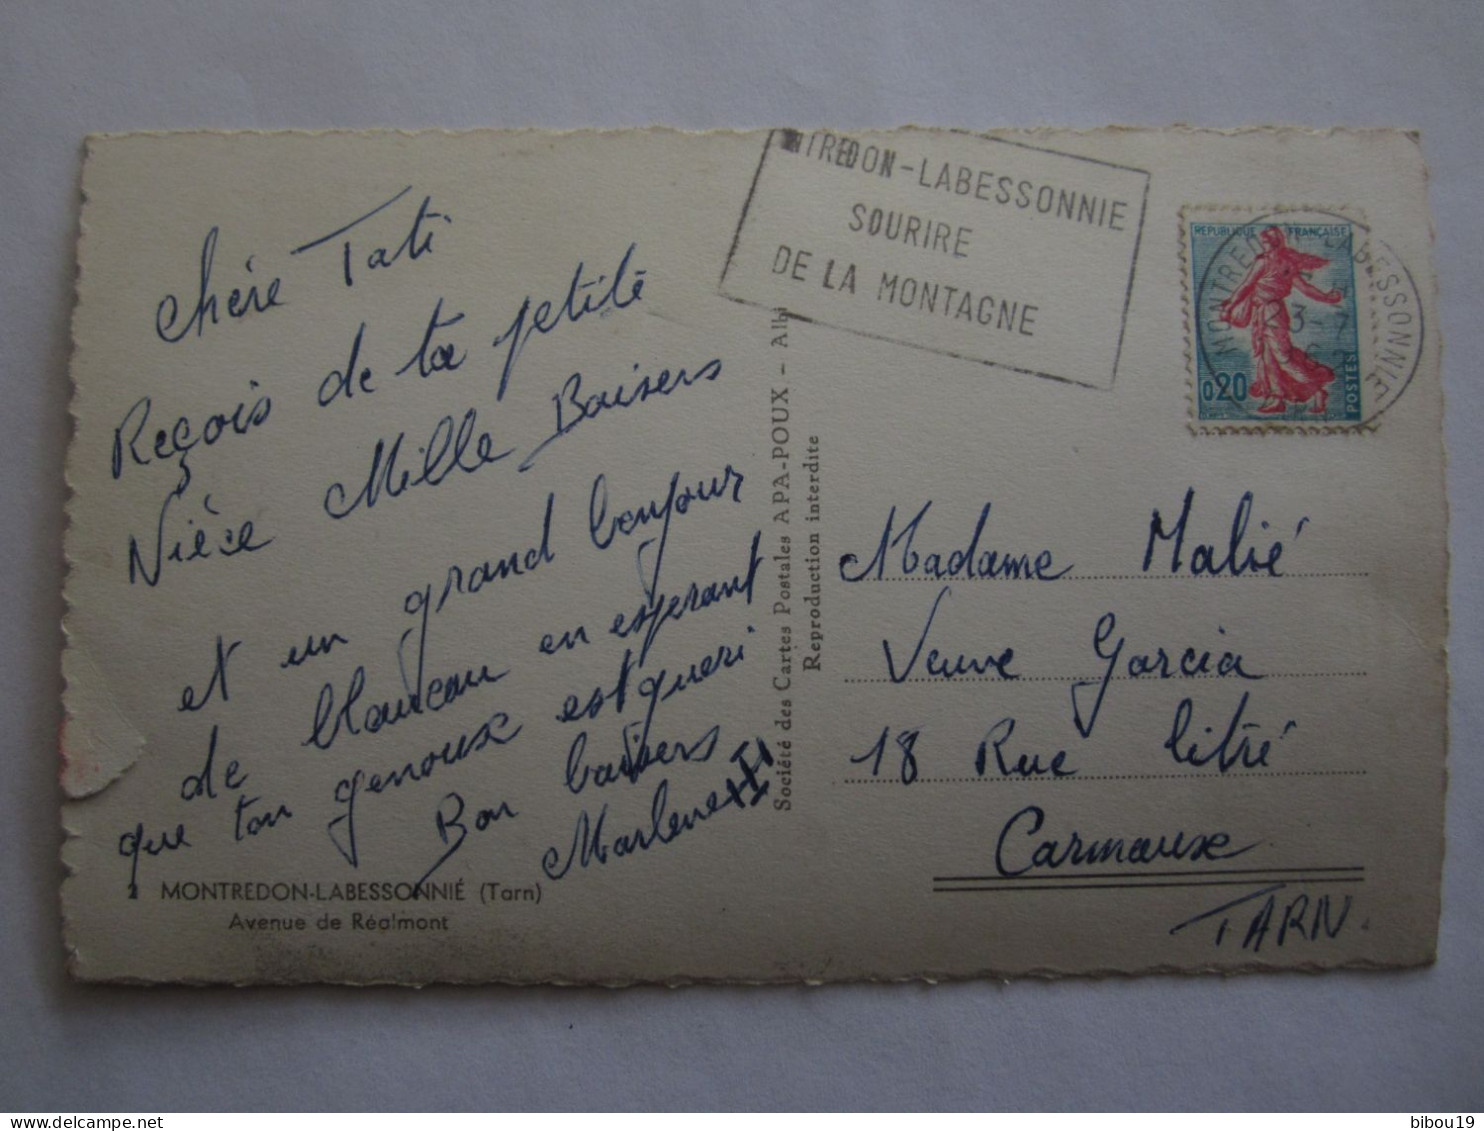 Chère Tati
Reçois de ta petite
Nièce Mille Baisers
et un grand bonjour
de en esperant
que ton genoux est gueri
Bon baisers
Marlene
2 MONTREDON-LABESSONNIÉ (Tarn)
Avenue de Réalmont
Société des Cartes Postales APA-POUX - Albi
Reproduction interdite
NTREDON-LABESSONNIE
SOURIRE
DE LA MONTAGNE
REPUBLIQUE FRANÇAISE
0,20
POSTES
MONTREDON LABESSONNIE
3-7
Madame Malié
Veuve Garcia
18 Rue Litré
Carmaux
TARN.
bibou19